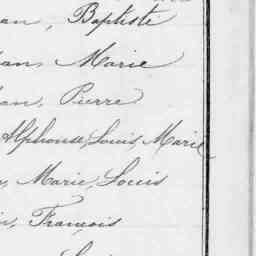 an, Baptiste
an, Marie
an, Pierre
Alphonse, Louis, Marie
, Marie, Louis
, François